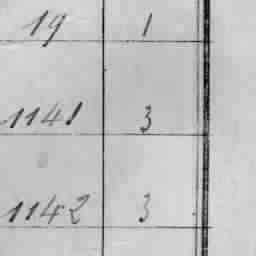 19 1
1141 3
1142 3